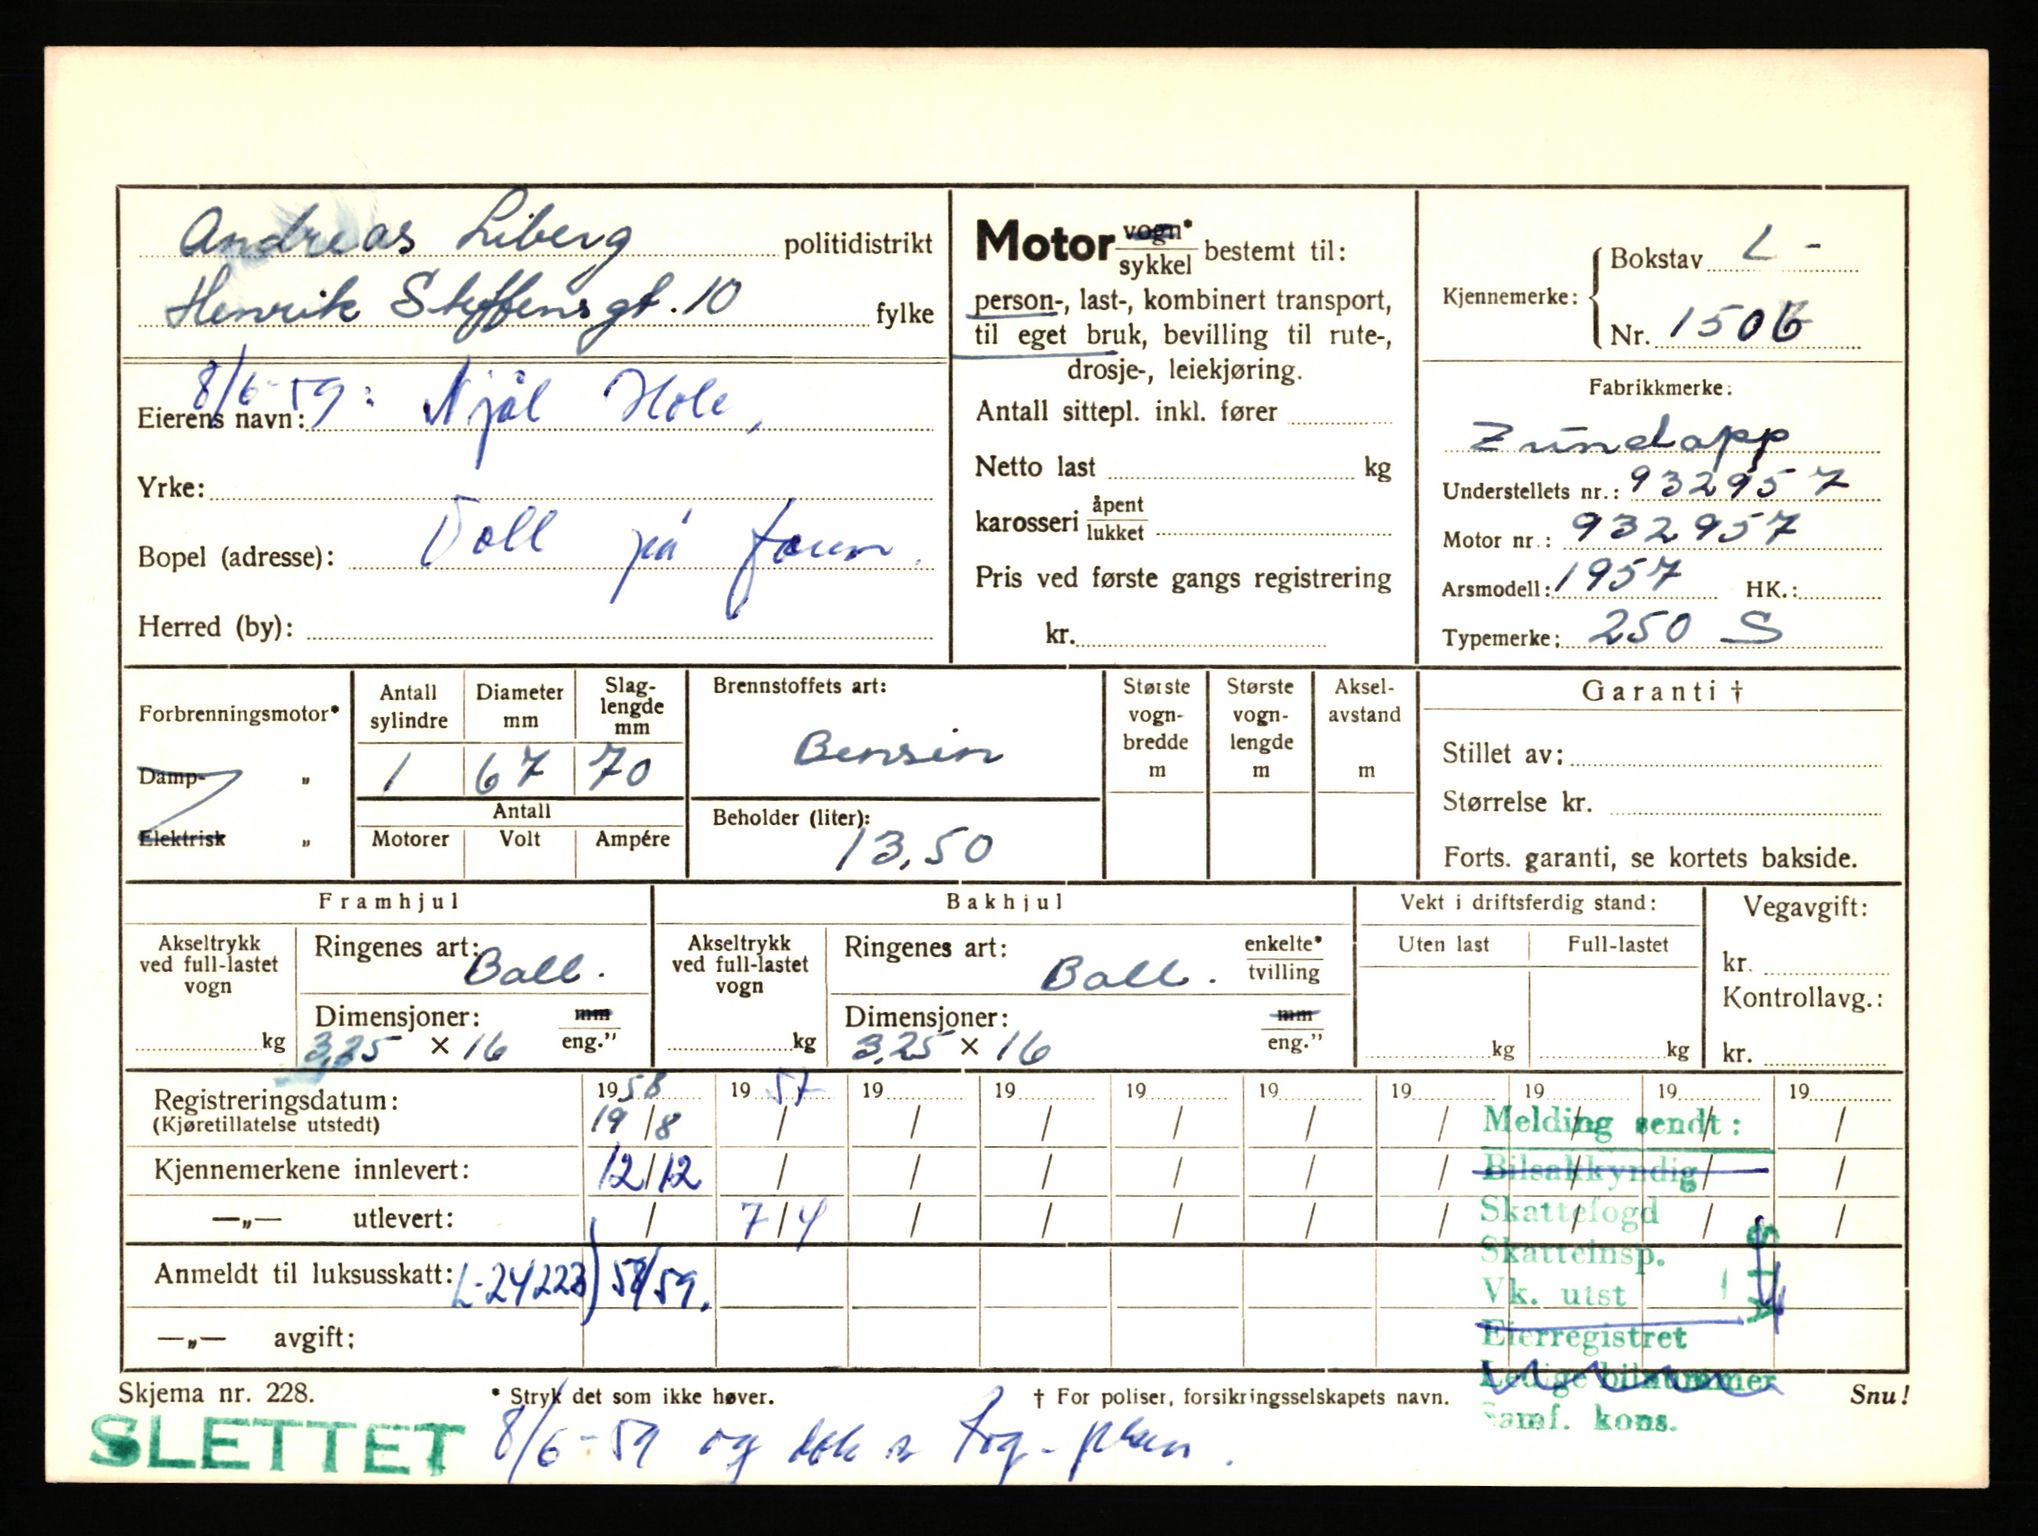 Andreas Liberg politidistrikt
Henrik Steffens gt. 10 fylke
8/6-59: Njål Hole,
Eierens navn:
Yrke:
Bopel (adresse): Voll på
Herred (by):
Motor vogn*/sykkel bestemt til:
person-, last-, kombinert transport,
til eget bruk, bevilling til rute-,
drosje-, leiekjøring.
Antall sittepl. inkl. fører
Netto last kg
karosseri åpent/lukket
Pris ved første gangs registrering
kr.
Kjennemerke: Bokstav L -
Nr. 1506
Fabrikkmerke:
Zündapp
Understellets nr.: 932957
Motor nr.: 932957
Arsmodell: 1957 HK.:
Typemerke: 250 S
Forbrenningsmotor*
Damp- "
Elektrisk "
Antall sylindre
Diameter mm
Slag-lengde mm
1 67 70
Antall
Motorer Volt Ampére
Brennstoffets art:
Bensin
Beholder (liter):
13,50
Største vogn-bredde m
Største vogn-lengde m
Aksel-avstand m
Garanti †
Stillet av:
Størrelse kr.
Forts. garanti, se kortets bakside.
Framhjul
Akseltrykk ved full-lastet vogn
kg
Ringenes art: Ball.
Dimensjoner: mm/eng."
3,25 × 16
Bakhjul
Akseltrykk ved full-lastet vogn
kg
Ringenes art: Ball. enkelte*/tvilling
Dimensjoner: mm/eng."
3,25 × 16
Vekt i driftsferdig stand:
Uten last Full-lastet
kg kg
Vegavgift:
kr.
Kontrollavg.:
kr.
1958 1957 19 19 19 19 19 19 19 19
Registreringsdatum: 19/8 / / / / / / / / /
(Kjøretillatelse utstedt)
Kjennemerkene innlevert: 12/12 / / / / / / / / /
—„— utlevert: / 7/4 / / / / / / / /
Anmeldt til luksusskatt: L-24223) 58/59.
—„— avgift:
Melding sendt:
Bilsakkyndig
Skattefogd
Skatteinsp.
Vk. utst
Eierregistret
Ledige bilnummer
Samf. kons.
Skjema nr. 228.
* Stryk det som ikke høver.
† For poliser, forsikringsselskapets navn.
Snu!
SLETTET 8/6-59 og